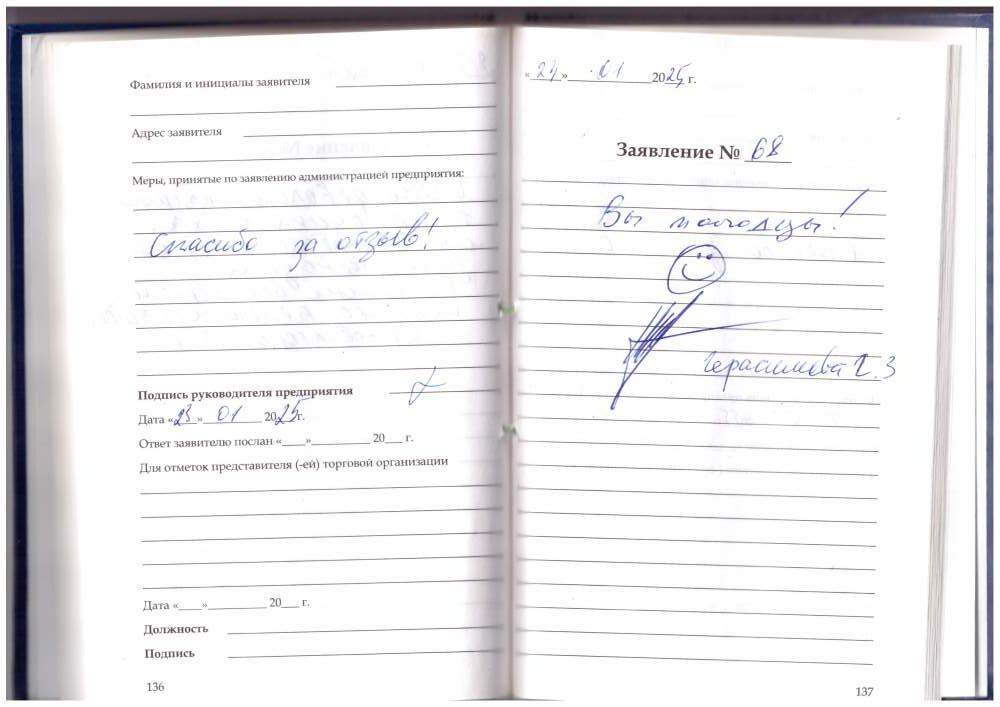 Фамилия и инициалы заявителя
Адрес заявителя
Меры, принятые по заявлению администрацией предприятия:
Спасибо за отзыв!
Подпись руководителя предприятия
Дата «23» 01 2025г.
Ответ заявителю послан «____»__________ 20___ г.
Для отметок представителя (-ей) торговой организации
Дата «____»__________ 20___ г.
Должность
Подпись
136
«24» 01 2025 г.
Заявление № 68
Вы молодцы!
Герасимова Г.З
137